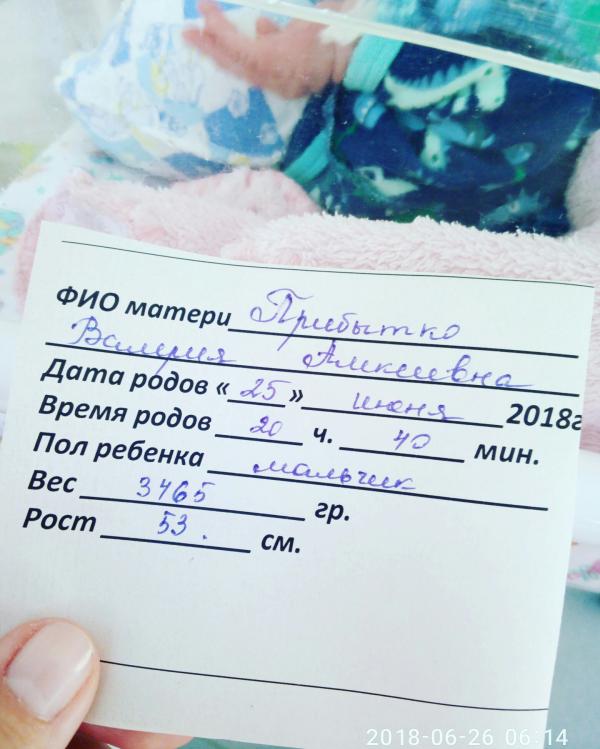 ФИО матери Прибытко
Валерия Алксеивна
Дата родов « 25 » июня 2018г
Время родов 20 ч. 40 мин.
Пол ребенка мальчик
Вес 3465 гр.
Рост 53. см.
2018-06-26 06:14